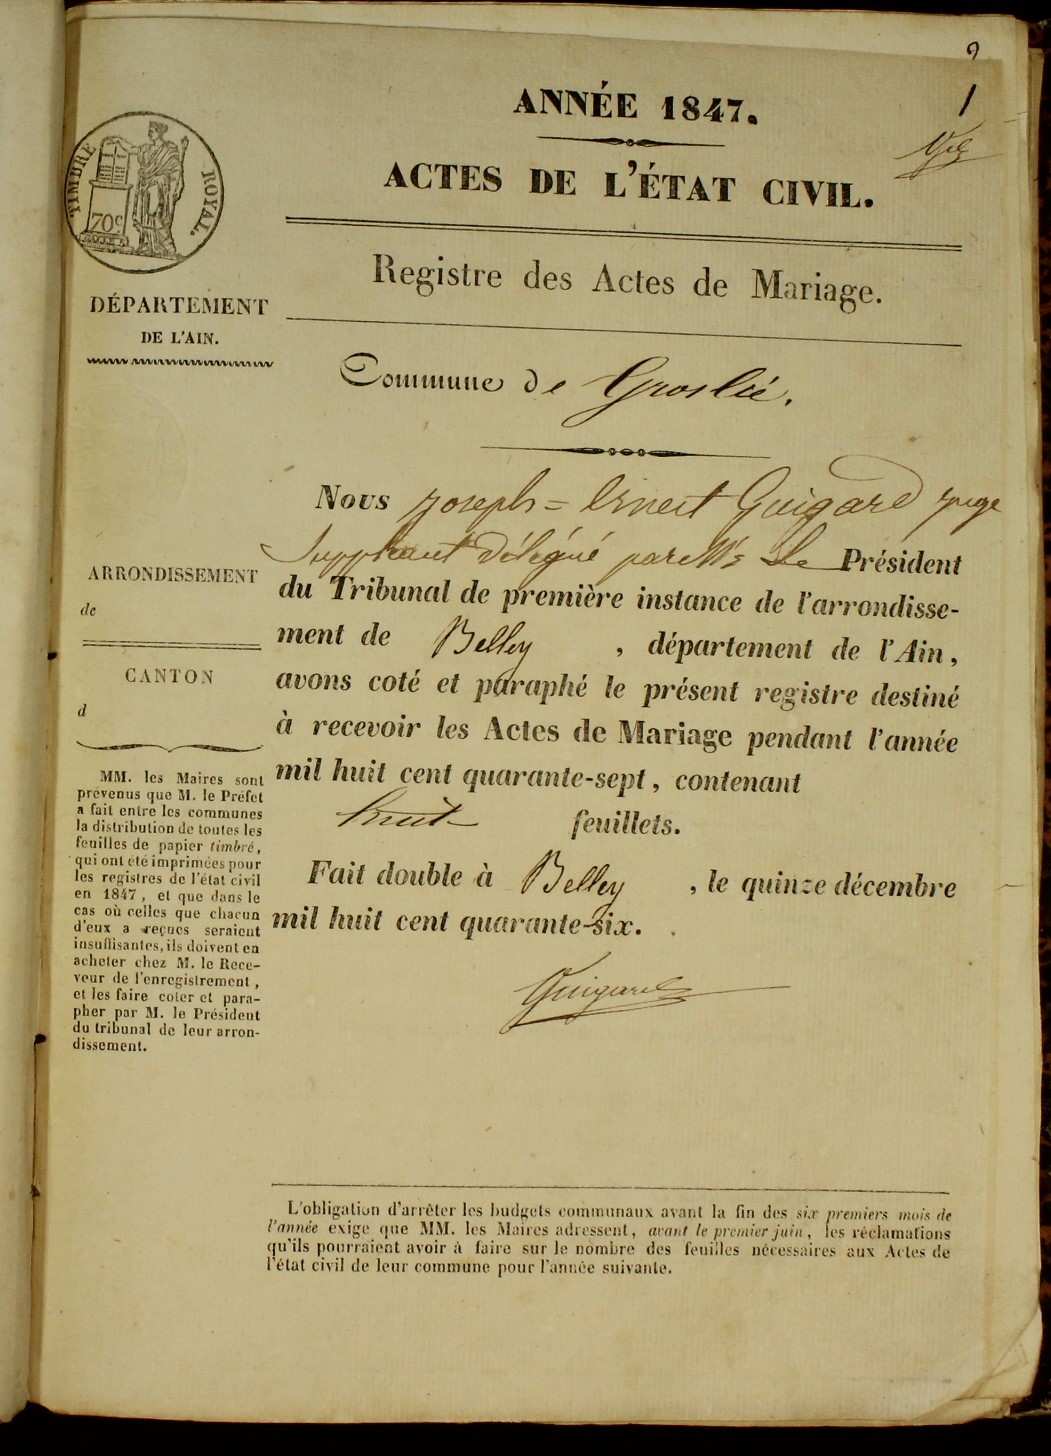 2
1
ANNÉE 1847.
ACTES DE L'ÉTAT CIVIL.
TIMBRE ROYAL.
70c
Registre des Actes de Mariage.
DÉPARTEMENT
DE L'AIN.
Commune de Groslée.
Nous Joseph = Ernest Guigard juge
Suppléant délégué par Mr Le Président
du Tribunal de première instance de l'arrondisse-
ment de Belley, département de l'Ain,
avons coté et paraphé le présent registre destiné
à recevoir les Actes de Mariage pendant l'année
mil huit cent quarante-sept, contenant
huit feuillets.
Fait double à Belley, le quinze décembre
mil huit cent quarante-six.
Guigard
ARRONDISSEMENT
de
CANTON
d
MM. les Maires sont
prévenus que M. le Préfet
a fait entre les communes
la distribution de toutes les
feuilles de papier timbré,
qui ont été imprimées pour
les registres de l'état civil
en 1847, et que dans le
cas où celles que chacun
d'eux a reçues seraient
insuffisantes, ils doivent en
acheter chez M. le Rece-
veur de l'enregistrement,
et les faire coter et para-
pher par M. le Président
du tribunal de leur arron-
dissement.
L'obligation d'arrêter les budgets communaux avant la fin des six premiers mois de
l'année exige que MM. les Maires adressent, avant le premier juin, les réclamations
qu'ils pourraient avoir à faire sur le nombre des feuilles nécessaires aux Actes de
l'état civil de leur commune pour l'année suivante.